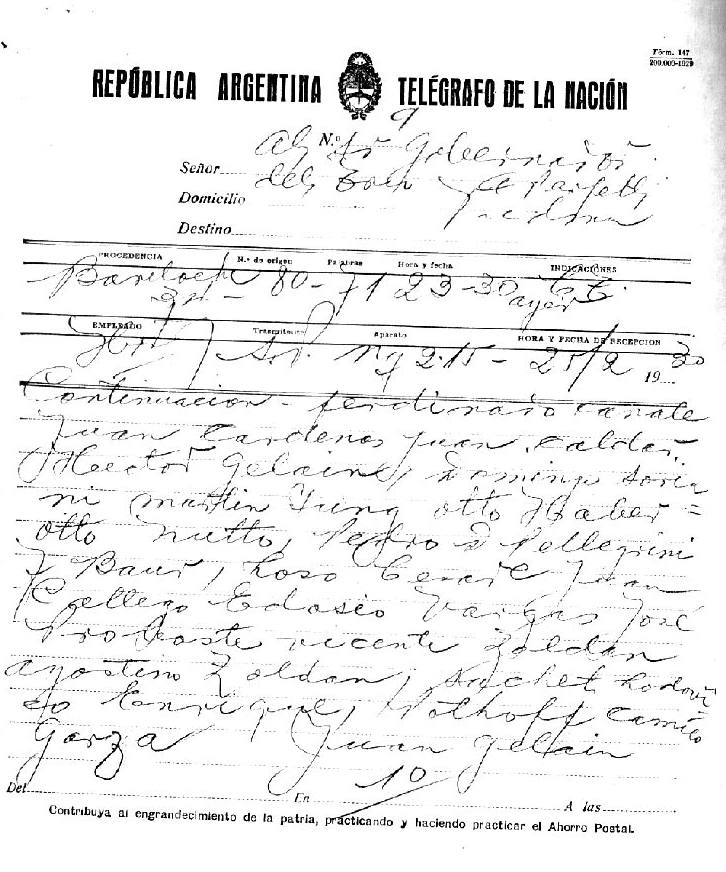 Fórm. 147
200.000-1929
REPÚBLICA ARGENTINA TELÉGRAFO DE LA NACIÓN
9
N.º
Al Sr Gobernador
Señor
del
Domicilio
Destino
PROCEDENCIA N.º de origen Palabras Hora y fecha INDICACIONES
Bariloche 80-71 23-30
ayer
EMPLEADO Transmitido Aparato HORA Y FECHA DE RECEPCION
2.15-25/2 1930
Continuacion - ferdinaso canale
Juan Cardenas Juan Caldar
Hector Gelain, Domingo Soria
ni martin Jung otto Haber =
otto mutto, Pedro D Pellegrini
J Baur, Juan
Callego Eolasio Vargas José
Probaste vicente Zoldan
agostino Zoldan, Anchet Lodovi
co Enrique, Pothoff Camilo
Garza Juan Gelain
10
Del En A las
Contribuya al engrandecimiento de la patria, practicando y haciendo practicar el Ahorro Postal.